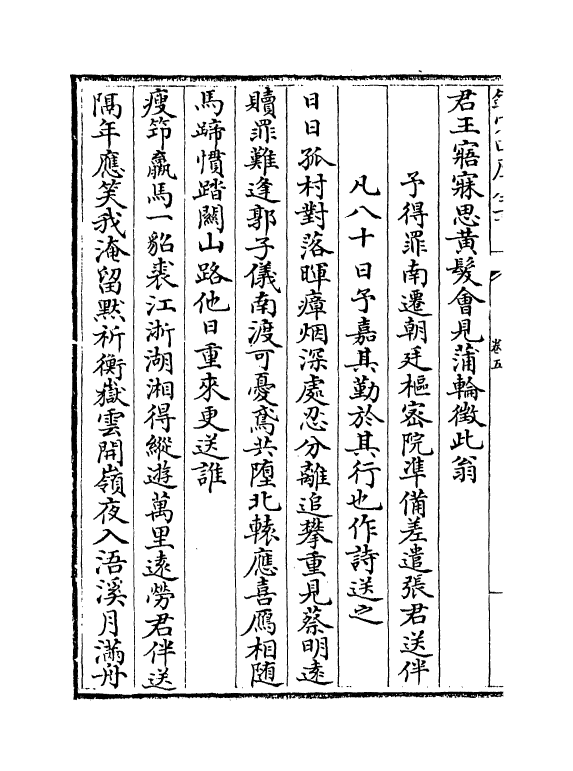 卷五
君王寤寐思黄髮會見蒲輪徵此翁
予得罪南遷朝廷樞宻院凖備差遣張君送伴
凡八十日予嘉其勤於其行也作詩送之
日日孤村對落暉瘴烟深處忍分離追攀重見蔡明逺
贖罪難逢郭子儀南渡可憂鳶共墮北轅應喜鴈相随
馬蹄慣踏闗山路他日重來更送誰
瘦笻羸馬一貂裘江浙湖湘得縱遊萬里逺勞君伴送
隔年應笑我淹留黙祈衡嶽雲開嶺夜入浯溪月滿舟